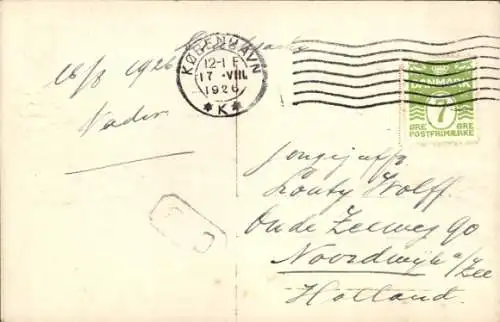 16/8 1926
Vader
KØBENHAVN
12-1 E
17 .VIII.
1926
* K *
DANMARK
7
ØRE ØRE
POSTFRIMÆRKE
Jongejuffr
Louty Wolff.
Oude Zeeweg 90
Noordwijk a/Zee
Holland.